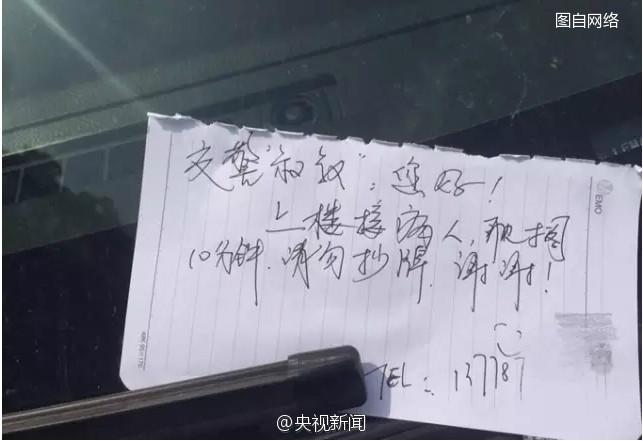 图自网络
交警“叔叔”：您好！
EMO
上楼接病人，耽搁
10分钟.请勿抄牌.谢谢！
TEL：137787
@央视新闻